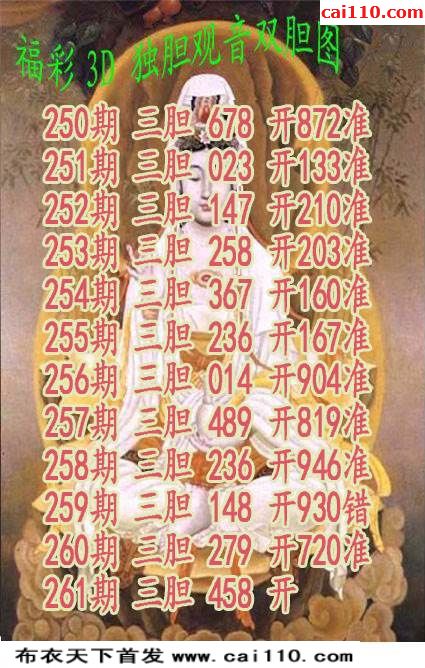 cai110.com
福彩3D 独胆观音双胆图
250期 三胆 678 开872准
251期 三胆 023 开133准
252期 三胆 147 开210准
253期 三胆 258 开203准
254期 三胆 367 开160准
255期 三胆 236 开167准
256期 三胆 014 开904准
257期 三胆 489 开819准
258期 三胆 236 开946准
259期 三胆 148 开930错
260期 三胆 279 开720准
261期 三胆 458 开
布衣天下首发 www.cai110.com